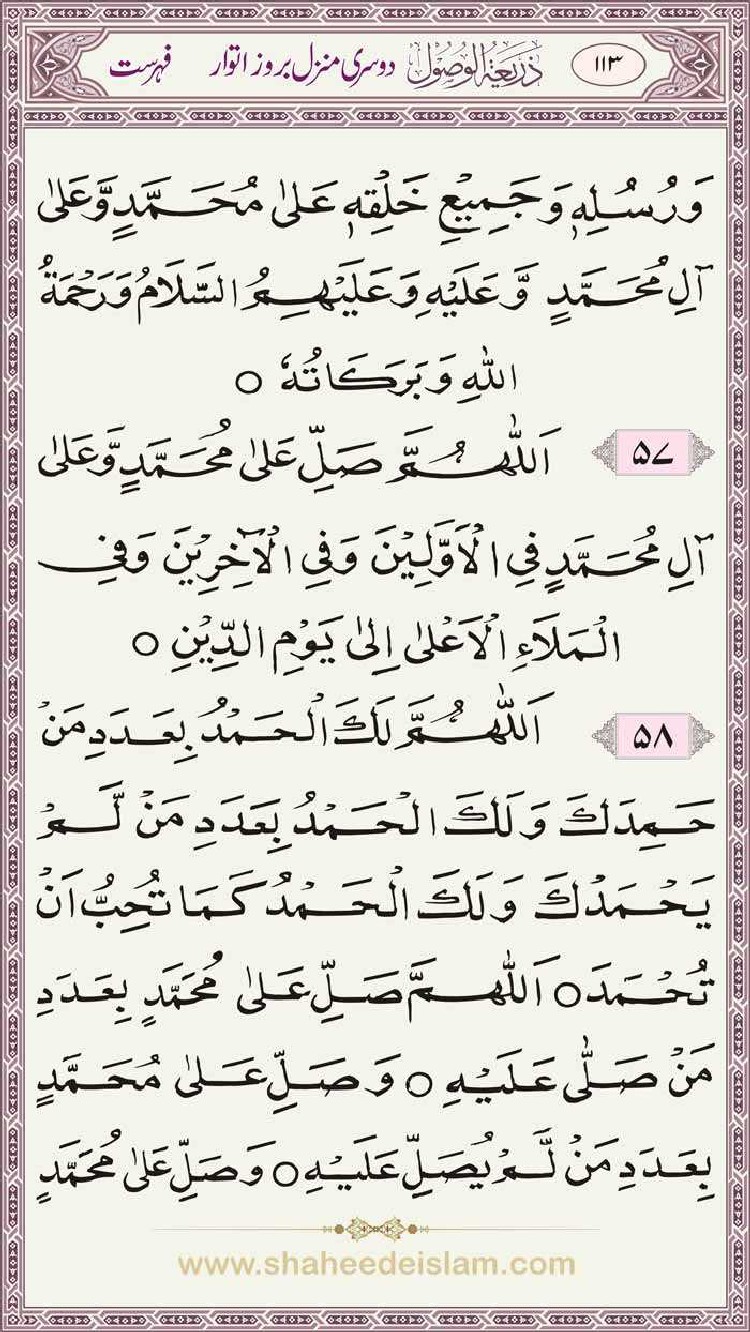 ۱۱۳ ذَرِيعَةُ الوُصُول دوسری منزل بروز اتوار فہرست
وَرُسُلِهٖ وَجَمِيْعِ خَلْقِهٖ عَلىٰ مُحَمَّدٍ وَّعَلىٰ
آلِ مُحَمَّدٍ وَّعَلَيْهِ وَعَلَيْهِمُ السَّلَامُ وَرَحْمَةُ
اللهِ وَبَرَكَاتُهٗ ○
۵۷ اَللّٰهُمَّ صَلِّ عَلىٰ مُحَمَّدٍ وَّعَلىٰ
آلِ مُحَمَّدٍ فِي الْاَوَّلِيْنَ وَفِي الْآخِرِيْنَ وَفِي
الْمَلَاءِ الْاَعْلىٰ اِلىٰ يَوْمِ الدِّيْنِ ○
۵۸ اَللّٰهُمَّ لَكَ الْحَمْدُ بِعَدَدِ مَنْ
حَمِدَكَ وَلَكَ الْحَمْدُ بِعَدَدِ مَنْ لَّمْ
يَحْمَدْكَ وَلَكَ الْحَمْدُ كَمَا تُحِبُّ اَنْ
تُحْمَدَ ○ اَللّٰهُمَّ صَلِّ عَلىٰ مُحَمَّدٍ بِعَدَدِ
مَنْ صَلّٰى عَلَيْهِ ○ وَصَلِّ عَلىٰ مُحَمَّدٍ
بِعَدَدِ مَنْ لَّمْ يُصَلِّ عَلَيْهِ ○ وَصَلِّ عَلىٰ مُحَمَّدٍ
www.shaheedeislam.com